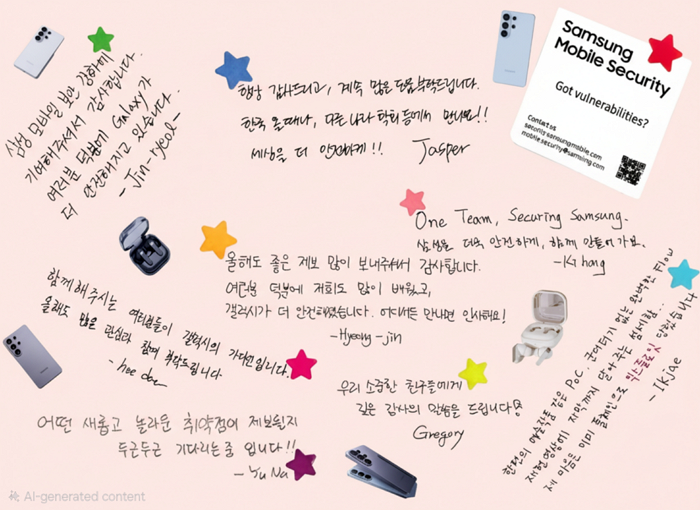 삼성 모바일 보안 강화에
기여해주셔서 감사합니다.
여러분 덕분에 Galaxy가
더 안전해지고 있습니다.
- Jin-ryeol -
항상 감사드리고, 계속 많은 도움 부탁드립니다.
한국 올때나, 다른 나라 학회 등에서 만나요!!
세상을 더 안전하게!!
Jasper
Samsung
Mobile Security
Got vulnerabilities?
Contact us
security.samsungmobile.com
mobile.security@samsung.com
One Team, Securing Samsung.
삼성을 더욱 안전하게, 함께 만들어 가요.
- Ki hong
올해도 좋은 제보 많이 보내주셔서 감사합니다.
여러분 덕분에 저희도 많이 배웠고,
갤럭시가 더 안전해졌습니다. 어디서든 만나면 인사해요!
- Hyeong-jin
함께 해주시는 여러분들이 갤럭시의 가디언입니다.
올해도 많은 관심과 참여 부탁드립니다.
우리 소중한 친구들에게
깊은 감사의 말씀을 드립니다
Gregory
한편의 예술작품 같은 PoC. 군더더기 없는 완벽한 Flow
재현영상에 자막까지 달아주는 섬세함..
제 마음은 이미 플래인으로 익스플로잇 당했습니다
- Ikjae
어떤 새롭고 놀라운 취약점이 제보될지
두근두근 기다리는 중 입니다!!
- Yu Na
AI-generated content